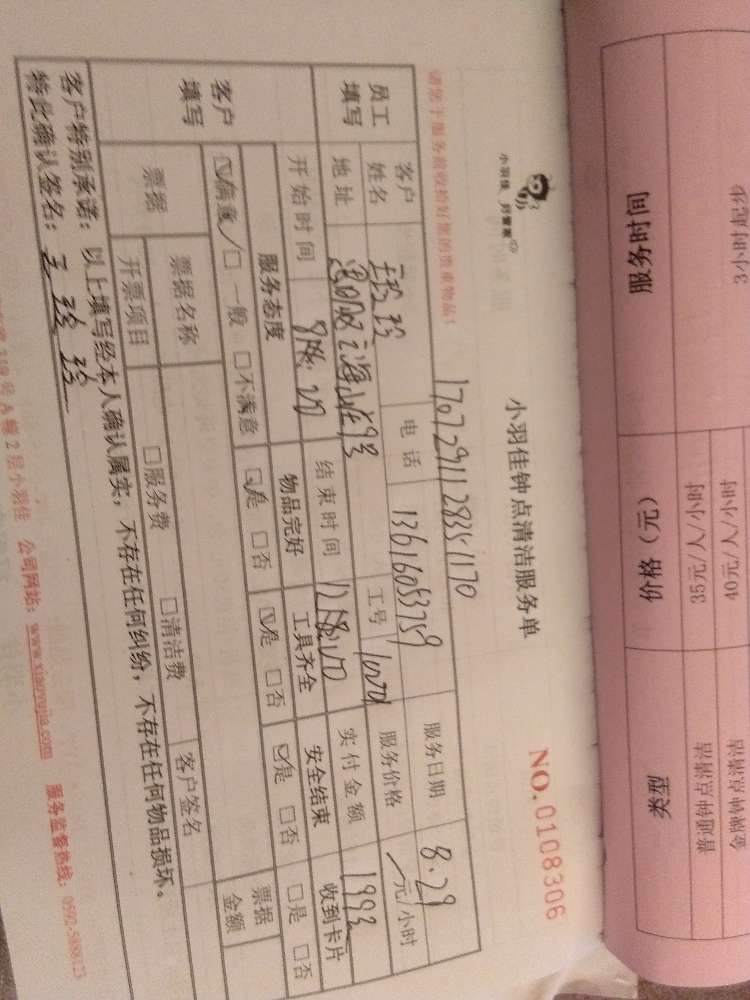 3小时起步
服务时间 价格（元） 类型
35元/人/小时 普通钟点清洁
40元/人/小时 金牌钟点清洁
小羽佳 好管家
小羽佳钟点清洁服务单
NO.0108306
请您于服务前收拾好您的贵重物品！
17072911128351170
员工填写
客户姓名 王珍珍 电话 13616053759 服务日期 8.29
地址 工号 服务价格 元/小时
开始时间 结束时间 实付金额 1992
客户填写
服务态度 物品完好 工具齐全 安全结束 收到卡片
☑满意 □一般 □不满意 ☑是 □否 ☑是 □否 ☑是 □否 □是 □否
票据 票据名称 □服务费 □清洁费 客户签名 票据金额
开票项目
客户特别承诺：以上填写经本人确认属实，不存在任何纠纷，不存在任何物品损坏。
特此确认签名：王珍珍
号A幢2层小羽佳 公司网站：www.xiaoyujia.com 服务监督热线：0592-5888123